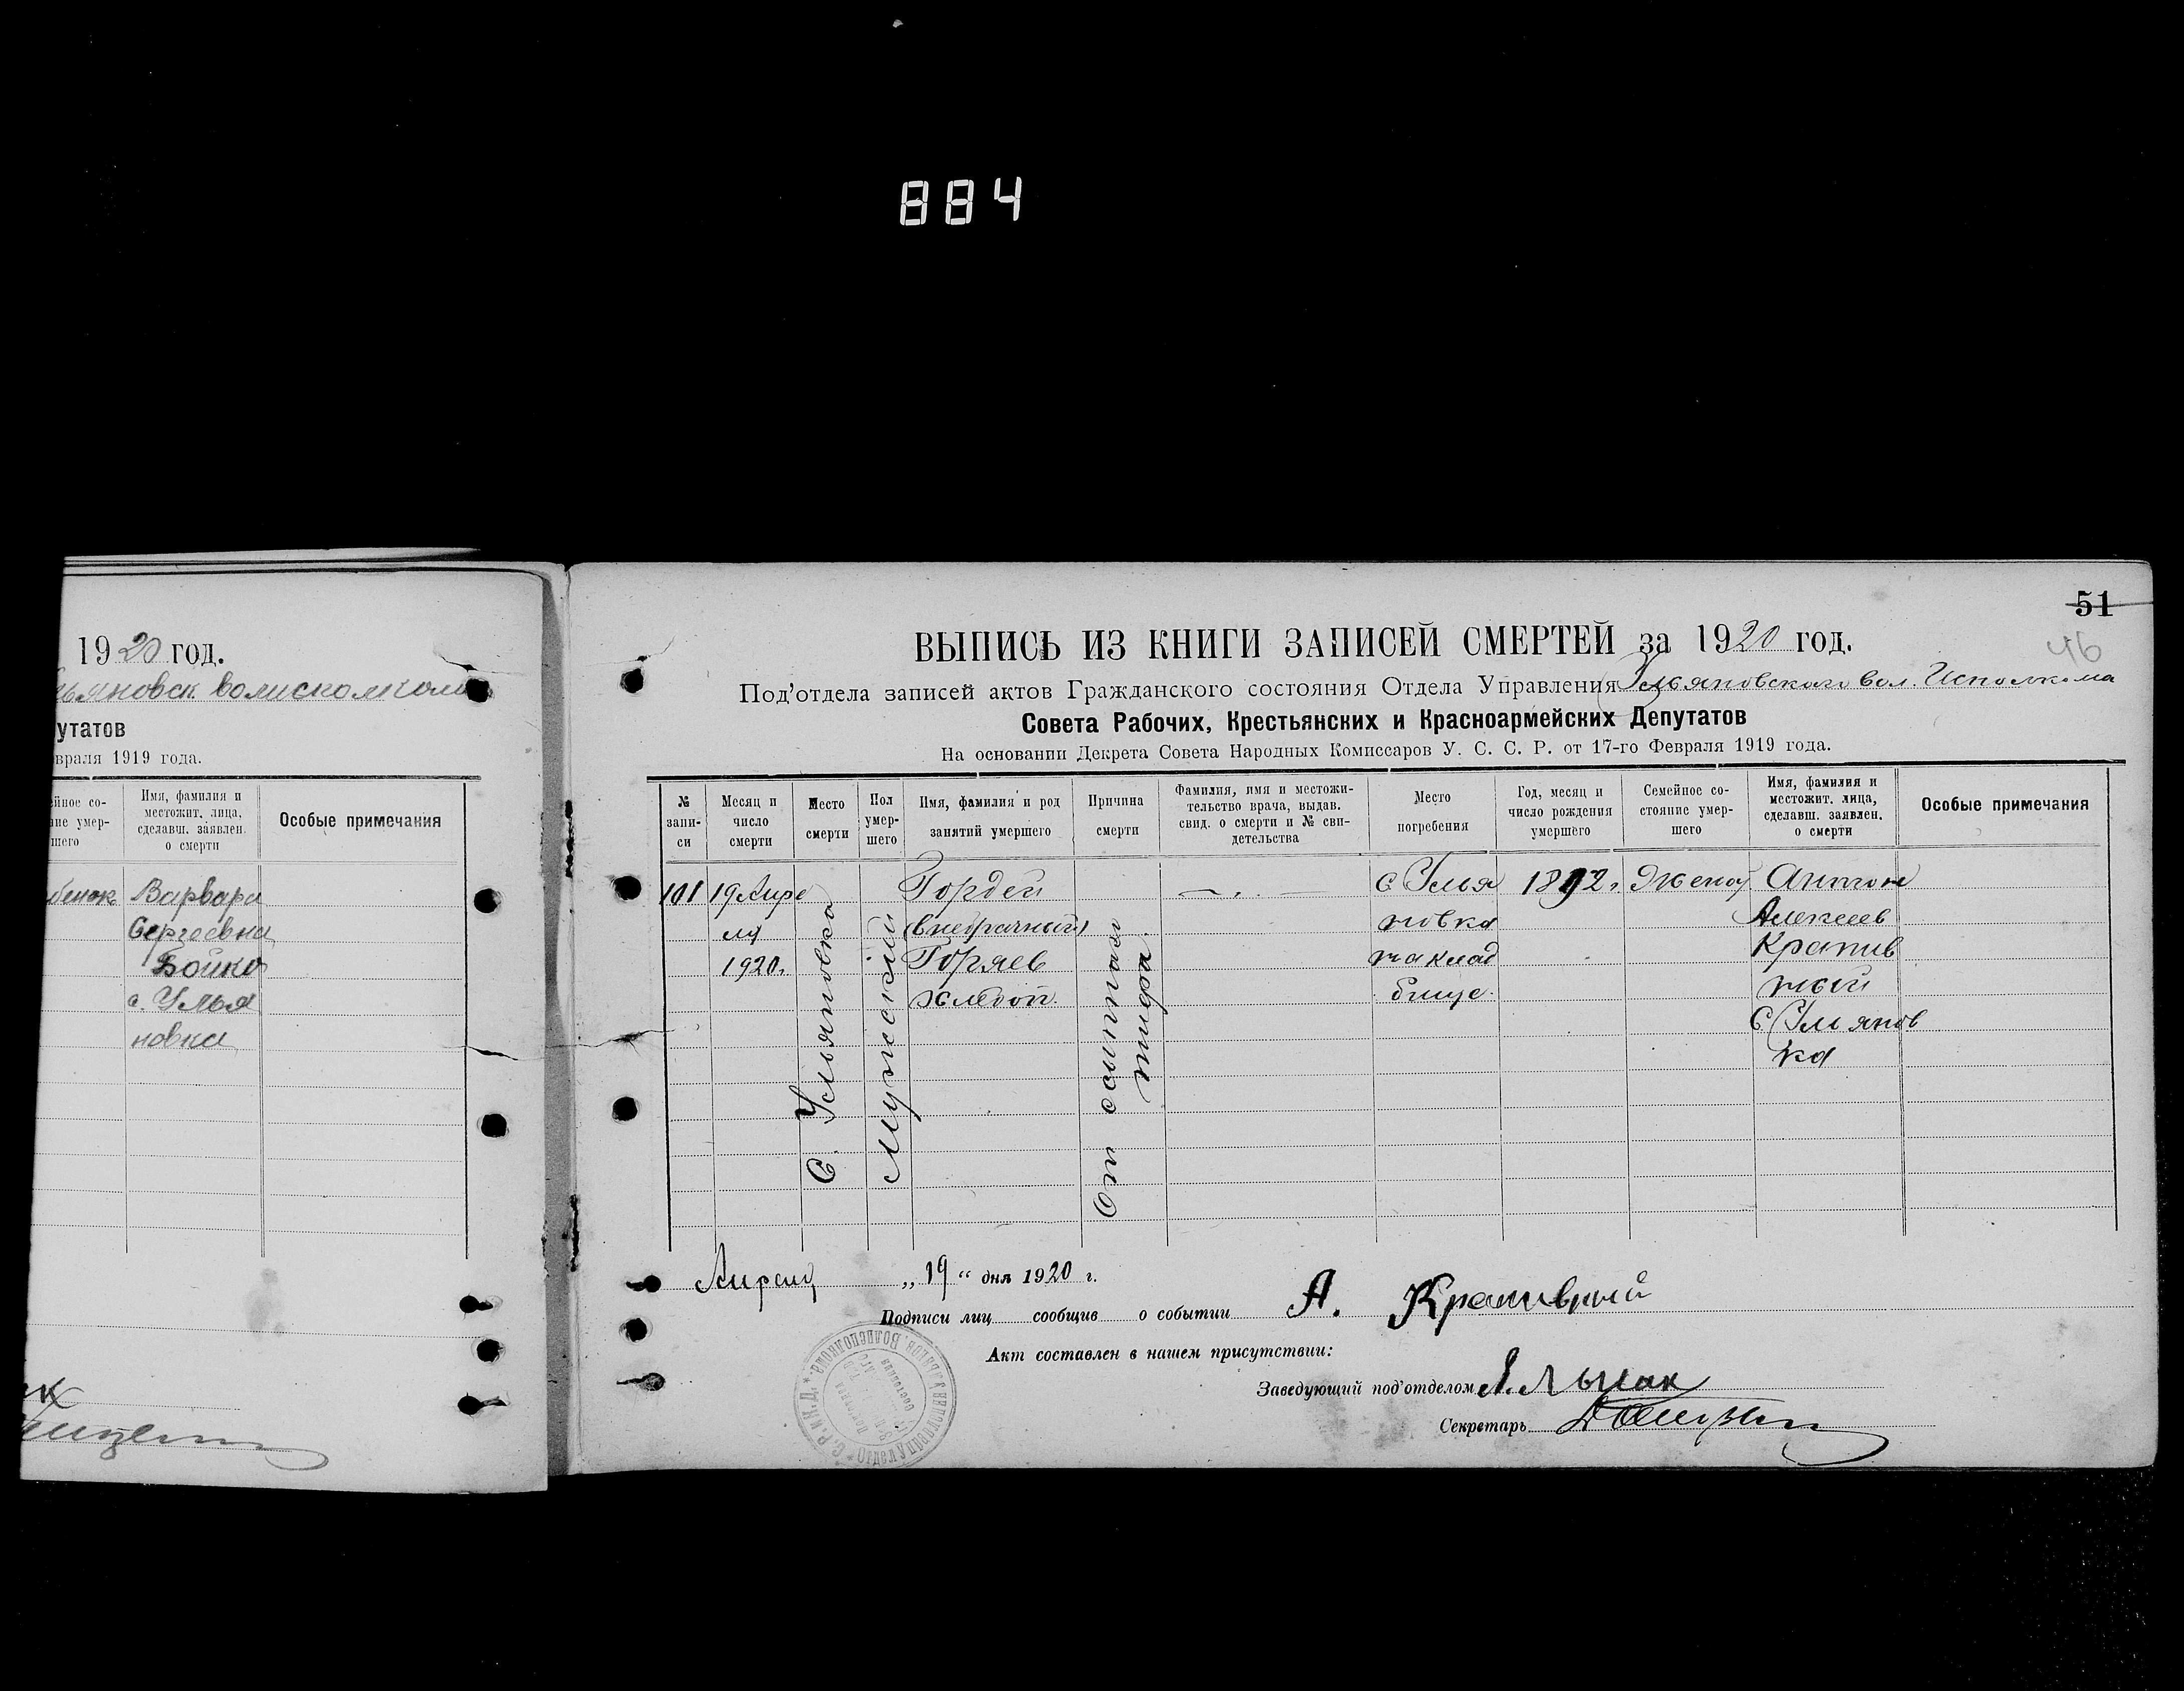 884
1920 год.
льяновск. волисполкома
утатов
враля 1919 года.
ейное со-
ние умер-
шего
Имя, фамилия и
местожит. лица,
сделавш. заявлен.
о смерти
Особые примечания
бенок
Варвара
Сергеевна
Бойко
с. Улья
новка
51
46
ВЫПИСЬ ИЗ КНИГИ ЗАПИСЕЙ СМЕРТЕЙ за 1920 год.
Под'отдела записей актов Гражданского состояния Отдела Управления Ульяновского вол. Исполкома
Совета Рабочих, Крестьянских и Красноармейских Депутатов
На основании Декрета Совета Народных Комиссаров У. С. С. Р. от 17-го Февраля 1919 года.
№
запи-
си
Месяц и
число
смерти
Место
смерти
Пол
умер-
шего
Имя, фамилия и род
занятий умершего
Причина
смерти
Фамилия, имя и местожи-
тельство врача, выдав.
свид. о смерти и № сви-
детельства
Место
погребения
Год, месяц и
число рождения
умершего
Семейное со-
стояние умер-
шего
Имя, фамилия и
местожит. лица,
сделавш. заявлен.
о смерти
Особые примечания
101
19 Апре
ля
1920.
С. Ульяновка
Мужской
Гордей
(внебрачный)
Горяев
хлебоп.
От сыпнаго
тифа.
— „ —
с Улья
новка
на клад
бище.
1892 г.
Женат
Антон
Алексеев
Крапив
ный
С Ульянов
ка
Апреля „19“ дня 1920 г.
Подписи лиц сообщив о событии А. Крапивный
Акт составлен в нашем присутствии:
Заведующий под'отделом
Секретарь